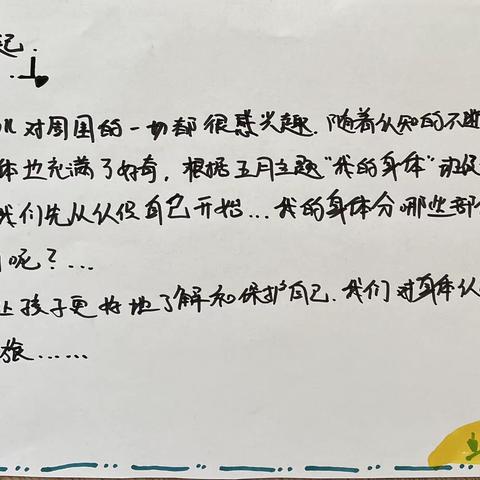 起.
儿对周围的一切都很感兴趣.随着认知的不断
体也充满了好奇,根据五月主题"我的身体"班级
我们先从认役自己开始...我的身体分哪些部
呢?...
让孩子更好地了解和保护自己.我们对身体认
旅......